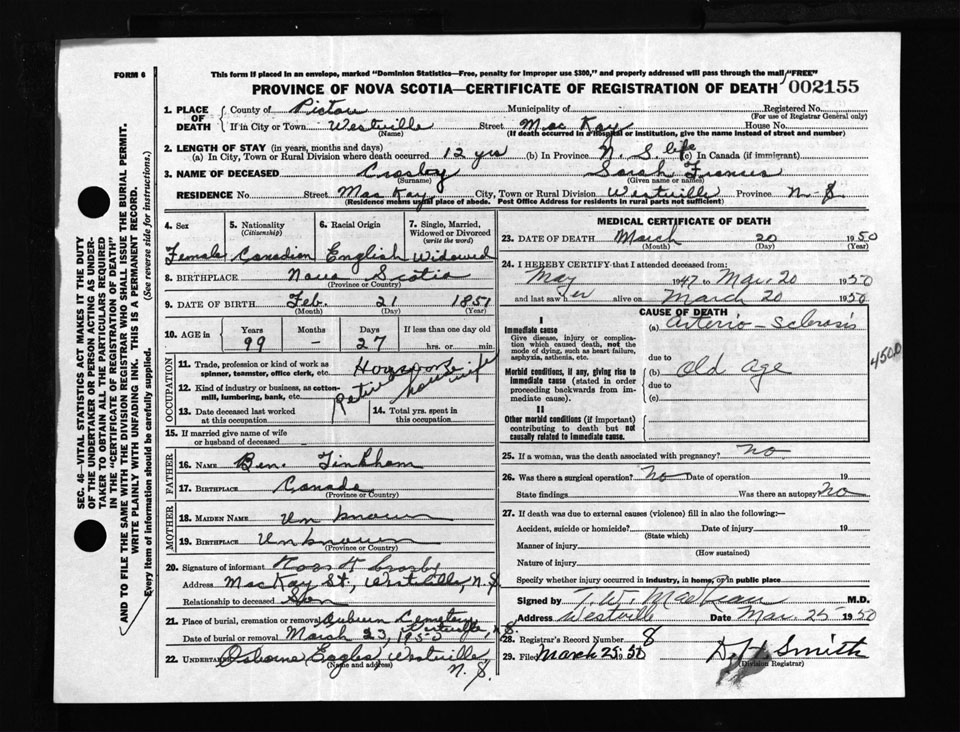 FORM 6
This form if placed in an envelope, marked "Dominion Statistics—Free, penalty for improper use $300," and properly addressed will pass through the mail "FREE"
PROVINCE OF NOVA SCOTIA—CERTIFICATE OF REGISTRATION OF DEATH 002155
1. PLACE OF DEATH County of Pictou Municipality of Registered No.
(For use of Registrar General only)
If in City or Town Westville Street MacKay House No.
(Name) (If death occurred in a hospital or institution, give the name instead of street and number)
2. LENGTH OF STAY (in years, months and days)
(a) In City, Town or Rural Division where death occurred 12 yrs (b) In Province N. S. life (c) In Canada (if immigrant)
3. NAME OF DECEASED Crosby Sarah Frances
(Surname) (Given name or names)
RESIDENCE No. Street MacKay City, Town or Rural Division Westville Province N-S.
(Residence means usual place of abode. Post Office Address for residents in rural parts not sufficient)
4. Sex 5. Nationality (Citizenship) 6. Racial Origin 7. Single, Married, Widowed or Divorced (write the word)
Female Canadian English Widowed
8. BIRTHPLACE Nova Scotia
(Province or Country)
9. DATE OF BIRTH Feb. 21 1851
(Month) (Day) (Year)
10. AGE in Years Months Days If less than one day old
99 - 27 hrs. or min.
OCCUPATION
11. Trade, profession or kind of work as spinner, teamster, office clerk, etc. Housework
12. Kind of industry or business, as cotton-mill, lumbering, bank, etc. retired housewife
13. Date deceased last worked at this occupation 14. Total yrs. spent in this occupation
15. If married give name of wife or husband of deceased
FATHER
16. NAME Ben. Tinkham
17. BIRTHPLACE Canada
(Province or Country)
MOTHER
18. MAIDEN NAME Unknown
19. BIRTHPLACE Unknown
(Province or Country)
20. Signature of informant Crosby
Address MacKay St., Westville, N.S.
Relationship to deceased Son
21. Place of burial, cremation or removal Auburn Cemetery Westville, N.S.
Date of burial or removal March 23, 1950
22. UNDERTAKER Osborne Eagles Westville N.S.
(Name and address)
MEDICAL CERTIFICATE OF DEATH
23. DATE OF DEATH March 20 1950
(Month) (Day) (Year)
24. I HEREBY CERTIFY that I attended deceased from:
May 1947 to Mar. 20 1950
and last saw her alive on March 20 1950
CAUSE OF DEATH
I
Immediate cause
Give disease, injury or complication which caused death, not the mode of dying, such as heart failure, asphyxia, asthenia, etc.
(a) Arterio-Sclerosis
due to
Morbid conditions, if any, giving rise to immediate cause (stated in order proceeding backwards from immediate cause).
(b) Old Age
due to
(c)
4500
II
Other morbid conditions (if important) contributing to death but not causally related to immediate cause.
25. If a woman, was the death associated with pregnancy? no
26. Was there a surgical operation? No Date of operation 19
State findings Was there an autopsy? No
27. If death was due to external causes (violence) fill in also the following:—
Accident, suicide or homicide? Date of injury 19
(State which)
Manner of injury
(How sustained)
Nature of injury
Specify whether injury occurred in industry, in home, or in public place
Signed by T. W. MacLean M.D.
Address Westville Date Mar. 25 1950
28. Registrar's Record Number 8
29. Filed March 25 1950 D. H. Smith
(Division Registrar)
SEC. 46—VITAL STATISTICS ACT MAKES IT THE DUTY
OF THE UNDERTAKER OR PERSON ACTING AS UNDER-
TAKER TO OBTAIN ALL THE PARTICULARS REQUIRED
IN THE "CERTIFICATE OF REGISTRATION OF DEATH"
AND TO FILE THE SAME WITH THE DIVISION REGISTRAR WHO SHALL ISSUE THE BURIAL PERMIT.
WRITE PLAINLY WITH UNFADING INK. THIS IS A PERMANENT RECORD.
Every item of information should be carefully supplied. (See reverse side for instructions.)